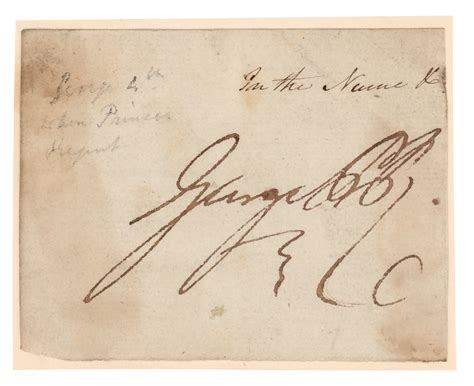 George 4th
when Prince
Regent
In the Name &
George P R.